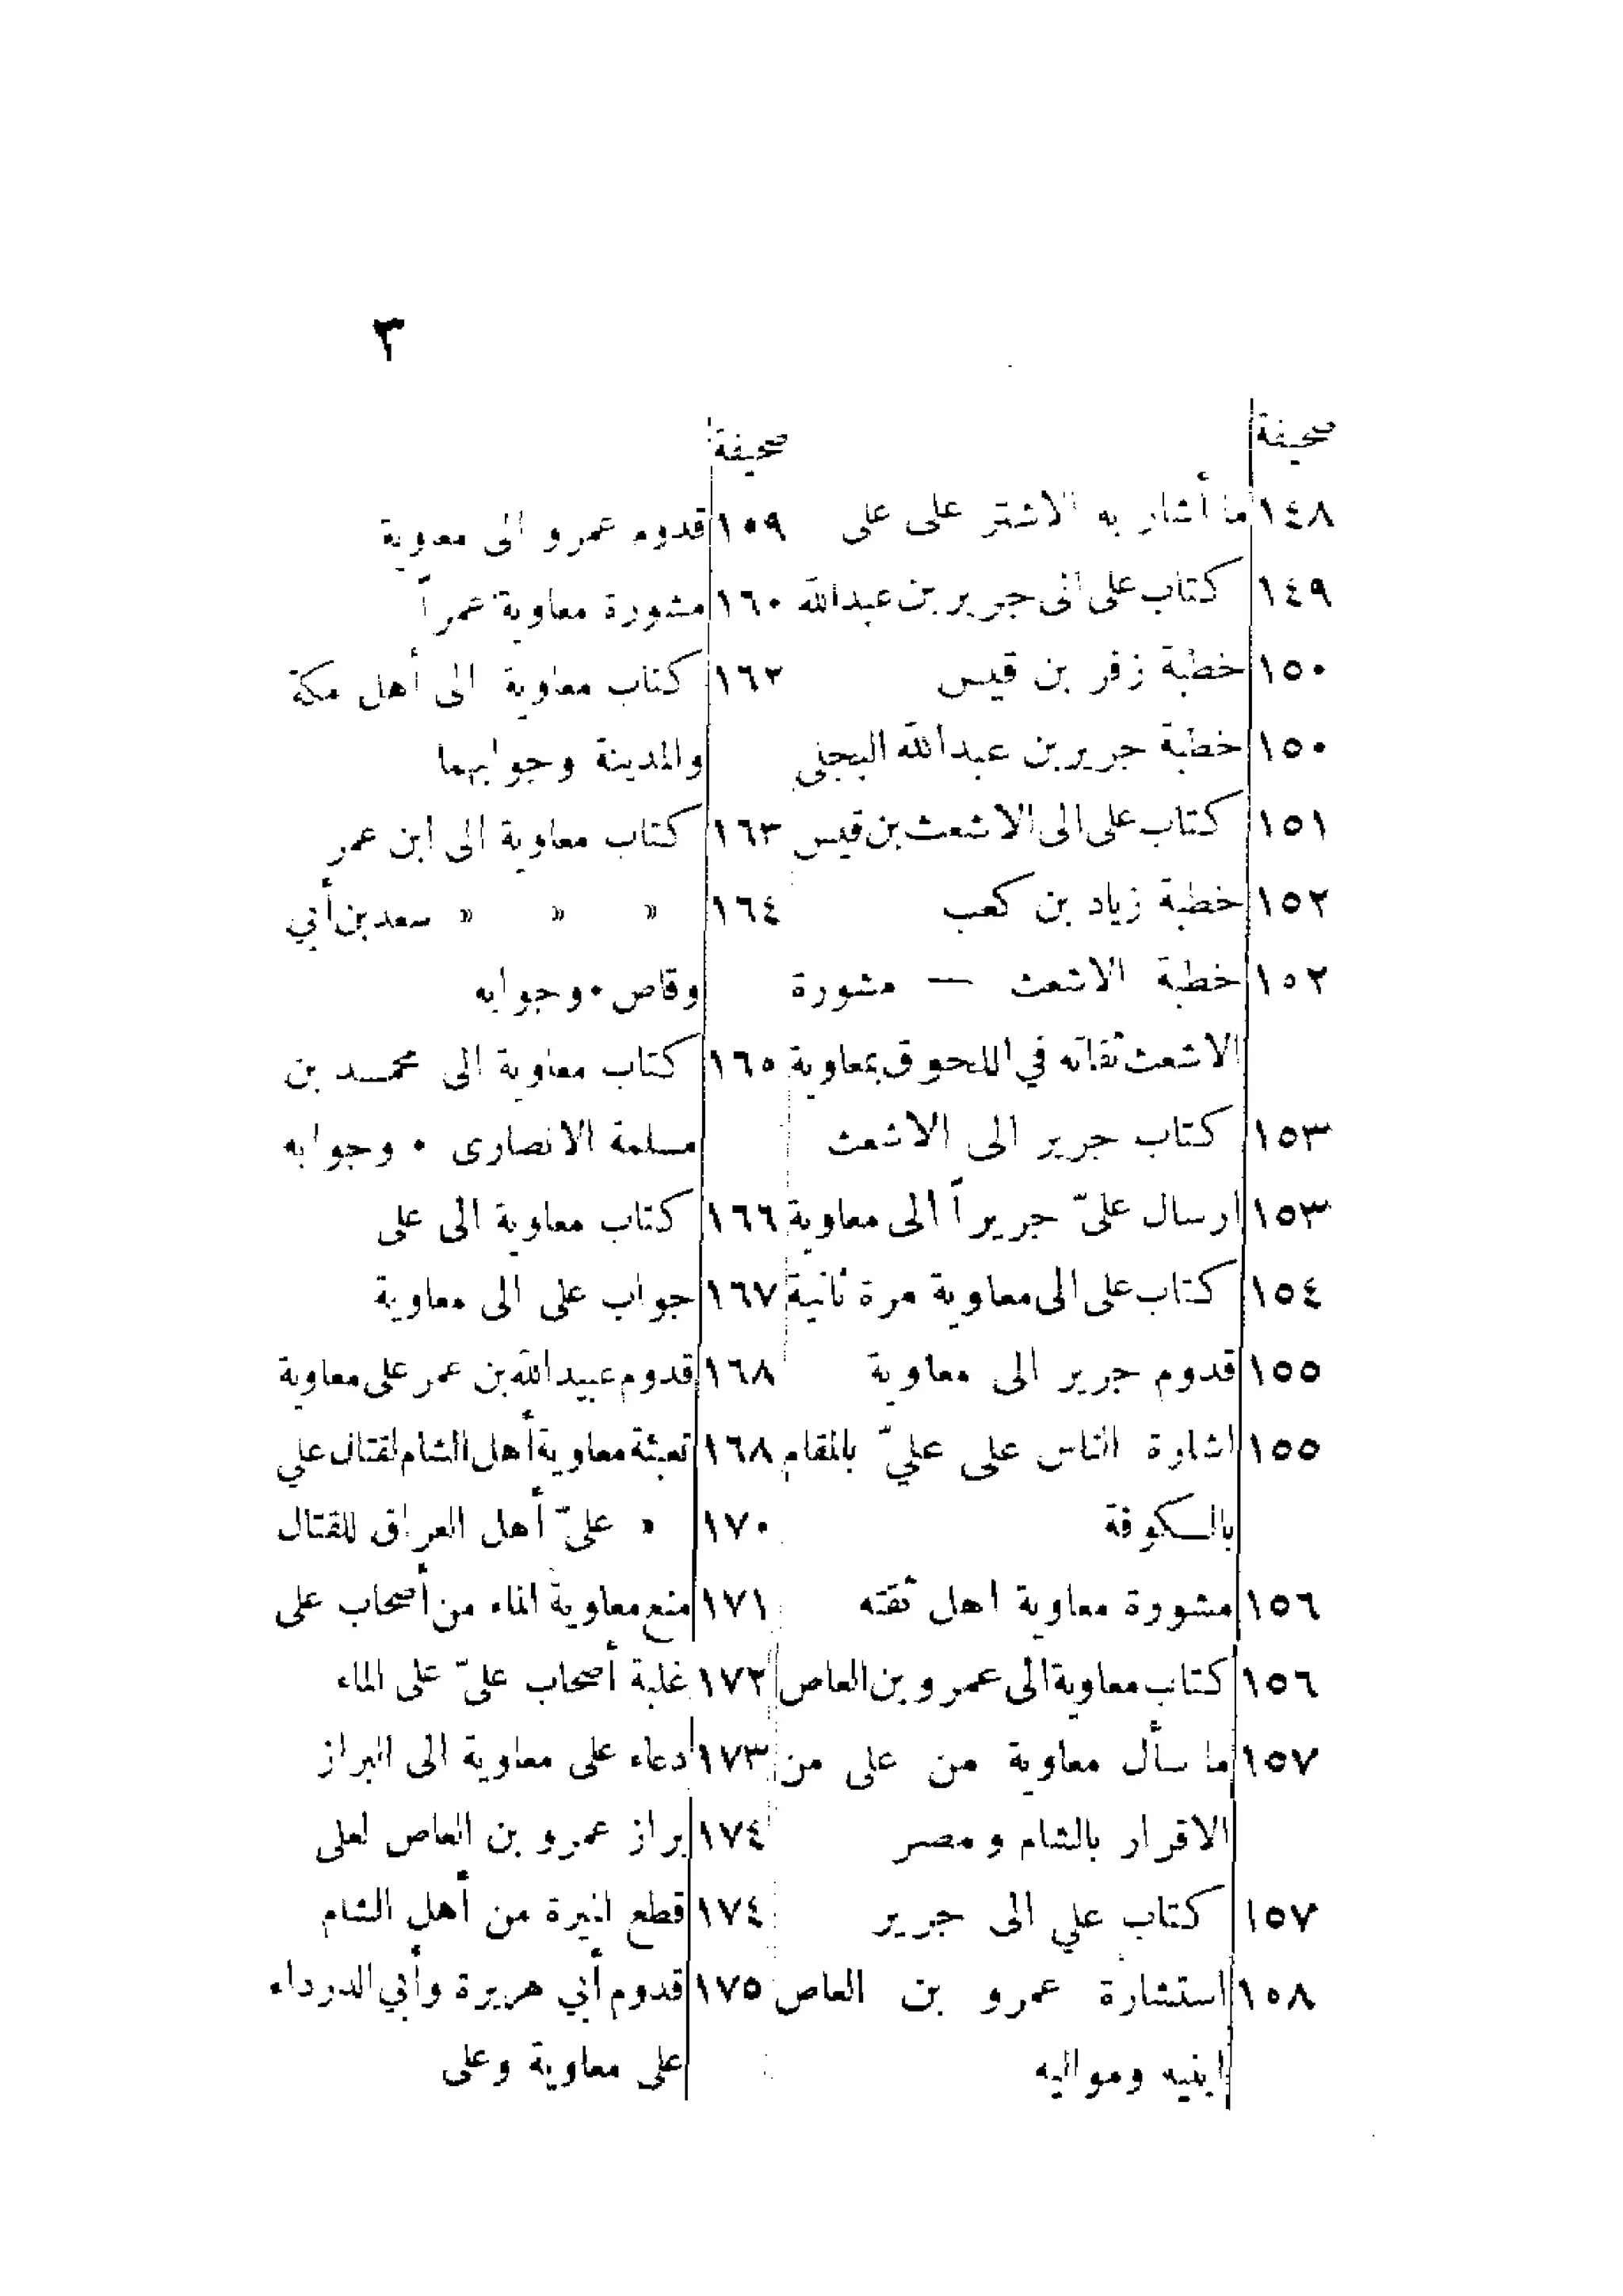 ٣
صحيفة
١٤٨ ما أشار به الاشتر على على
١٤٩ كتاب على الى جرير بن عبدالله
١٥٠ خطبة زفر بن قيس
١٥٠ خطبة جرير بن عبدالله البجلى
١٥١ كتاب على الى الاشعث بن قيس
١٥٢ خطبة زياد بن كعب
١٥٢ خطبة الاشعث — مشورة
الاشعث ثقاته في اللحوق بمعاوية
١٥٣ كتاب جرير الى الاشعث
١٥٣ ارسال علىّ جريراً الى معاوية
١٥٤ كتاب على الى معاوية مرة ثانية
١٥٥ قدوم جرير الى معاوية
١٥٥ اشارة الناس على عليّ بالمقام
بالكوفة
١٥٦ مشورة معاوية اهل ثقته
١٥٦ كتاب معاوية الى عمرو بن العاص
١٥٧ ما سأل معاوية من على من
الاقرار بالشام ومصر
١٥٧ كتاب علي الى جرير
١٥٨ استشارة عمرو بن العاص
ابنيه ومواليه
صحيفة
١٥٩ قدوم عمرو الى معاوية
١٦٠ مشورة معاوية عمراً
١٦٢ كتاب معاوية الى أهل مكة
والمدينة وجوابهما
١٦٣ كتاب معاوية الى ابن عمر
١٦٤ » » » سعد بن أبي
وقاص • وجوابه
١٦٥ كتاب معاوية الى محمد بن
مسلمة الانصارى • وجوابه
١٦٦ كتاب معاوية الى على
١٦٧ جواب على الى معاوية
١٦٨ قدوم عبيدالله بن عمر على معاوية
١٦٨ تعبئة معاوية أهل الشام لقتال علي
١٧٠ » علىّ أهل العراق للقتال
١٧١ منع معاوية الماء من أصحاب على
١٧٢ غلبة أصحاب علىّ على الماء
١٧٣ دعاء على معاوية الى البراز
١٧٤ براز عمرو بن العاص لعلى
١٧٤ قطع الميرة من أهل الشام
١٧٥ قدوم أبي هريرة وأبي الدرداء
على معاوية وعلى